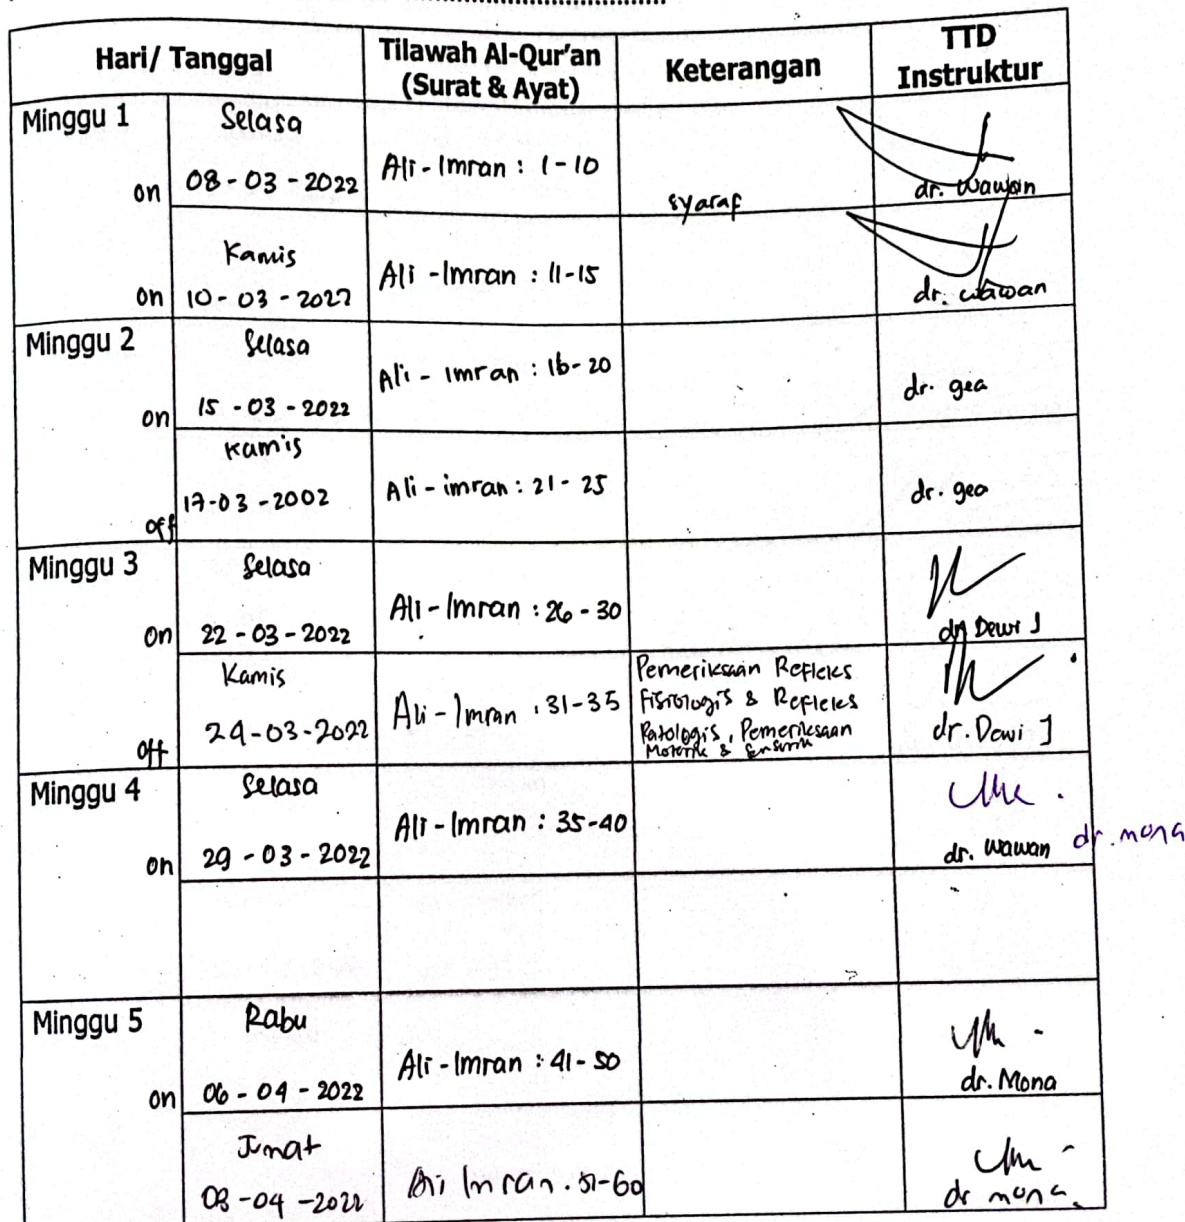 Hari/ Tanggal
Tilawah Al-Qur'an
(Surat & Ayat)
Keterangan
TTD
Instruktur
Minggu 1
Selasa
on
08-03-2022
Ali-Imran : 1-10
syaraf
dr. Wawan
Kamis
on
10-03-2022
Ali-Imran : 11-15
dr. wawan
Minggu 2
Selasa
on
15-03-2022
Ali-Imran : 16-20
dr. gea
Kamis
off
17-03-2002
Ali-imran : 21-25
dr. gea
Minggu 3
Selasa
on
22-03-2022
Ali-Imran : 26-30
dr Dewi J
Kamis
off
24-03-2022
Ali-Imran : 31-35
Pemeriksaan Refleks
Fisiologis & Refleks
Patologis, Pemeriksaan
Motorik & Sensorik
dr. Dewi J
Minggu 4
Selasa
on
29-03-2022
Ali-Imran : 35-40
dr. Wawan
dr. mona
Minggu 5
Rabu
on
06-04-2022
Ali-Imran : 41-50
dr. Mona
Jumat
08-04-2022
Ali Imran. 51-60
dr mona